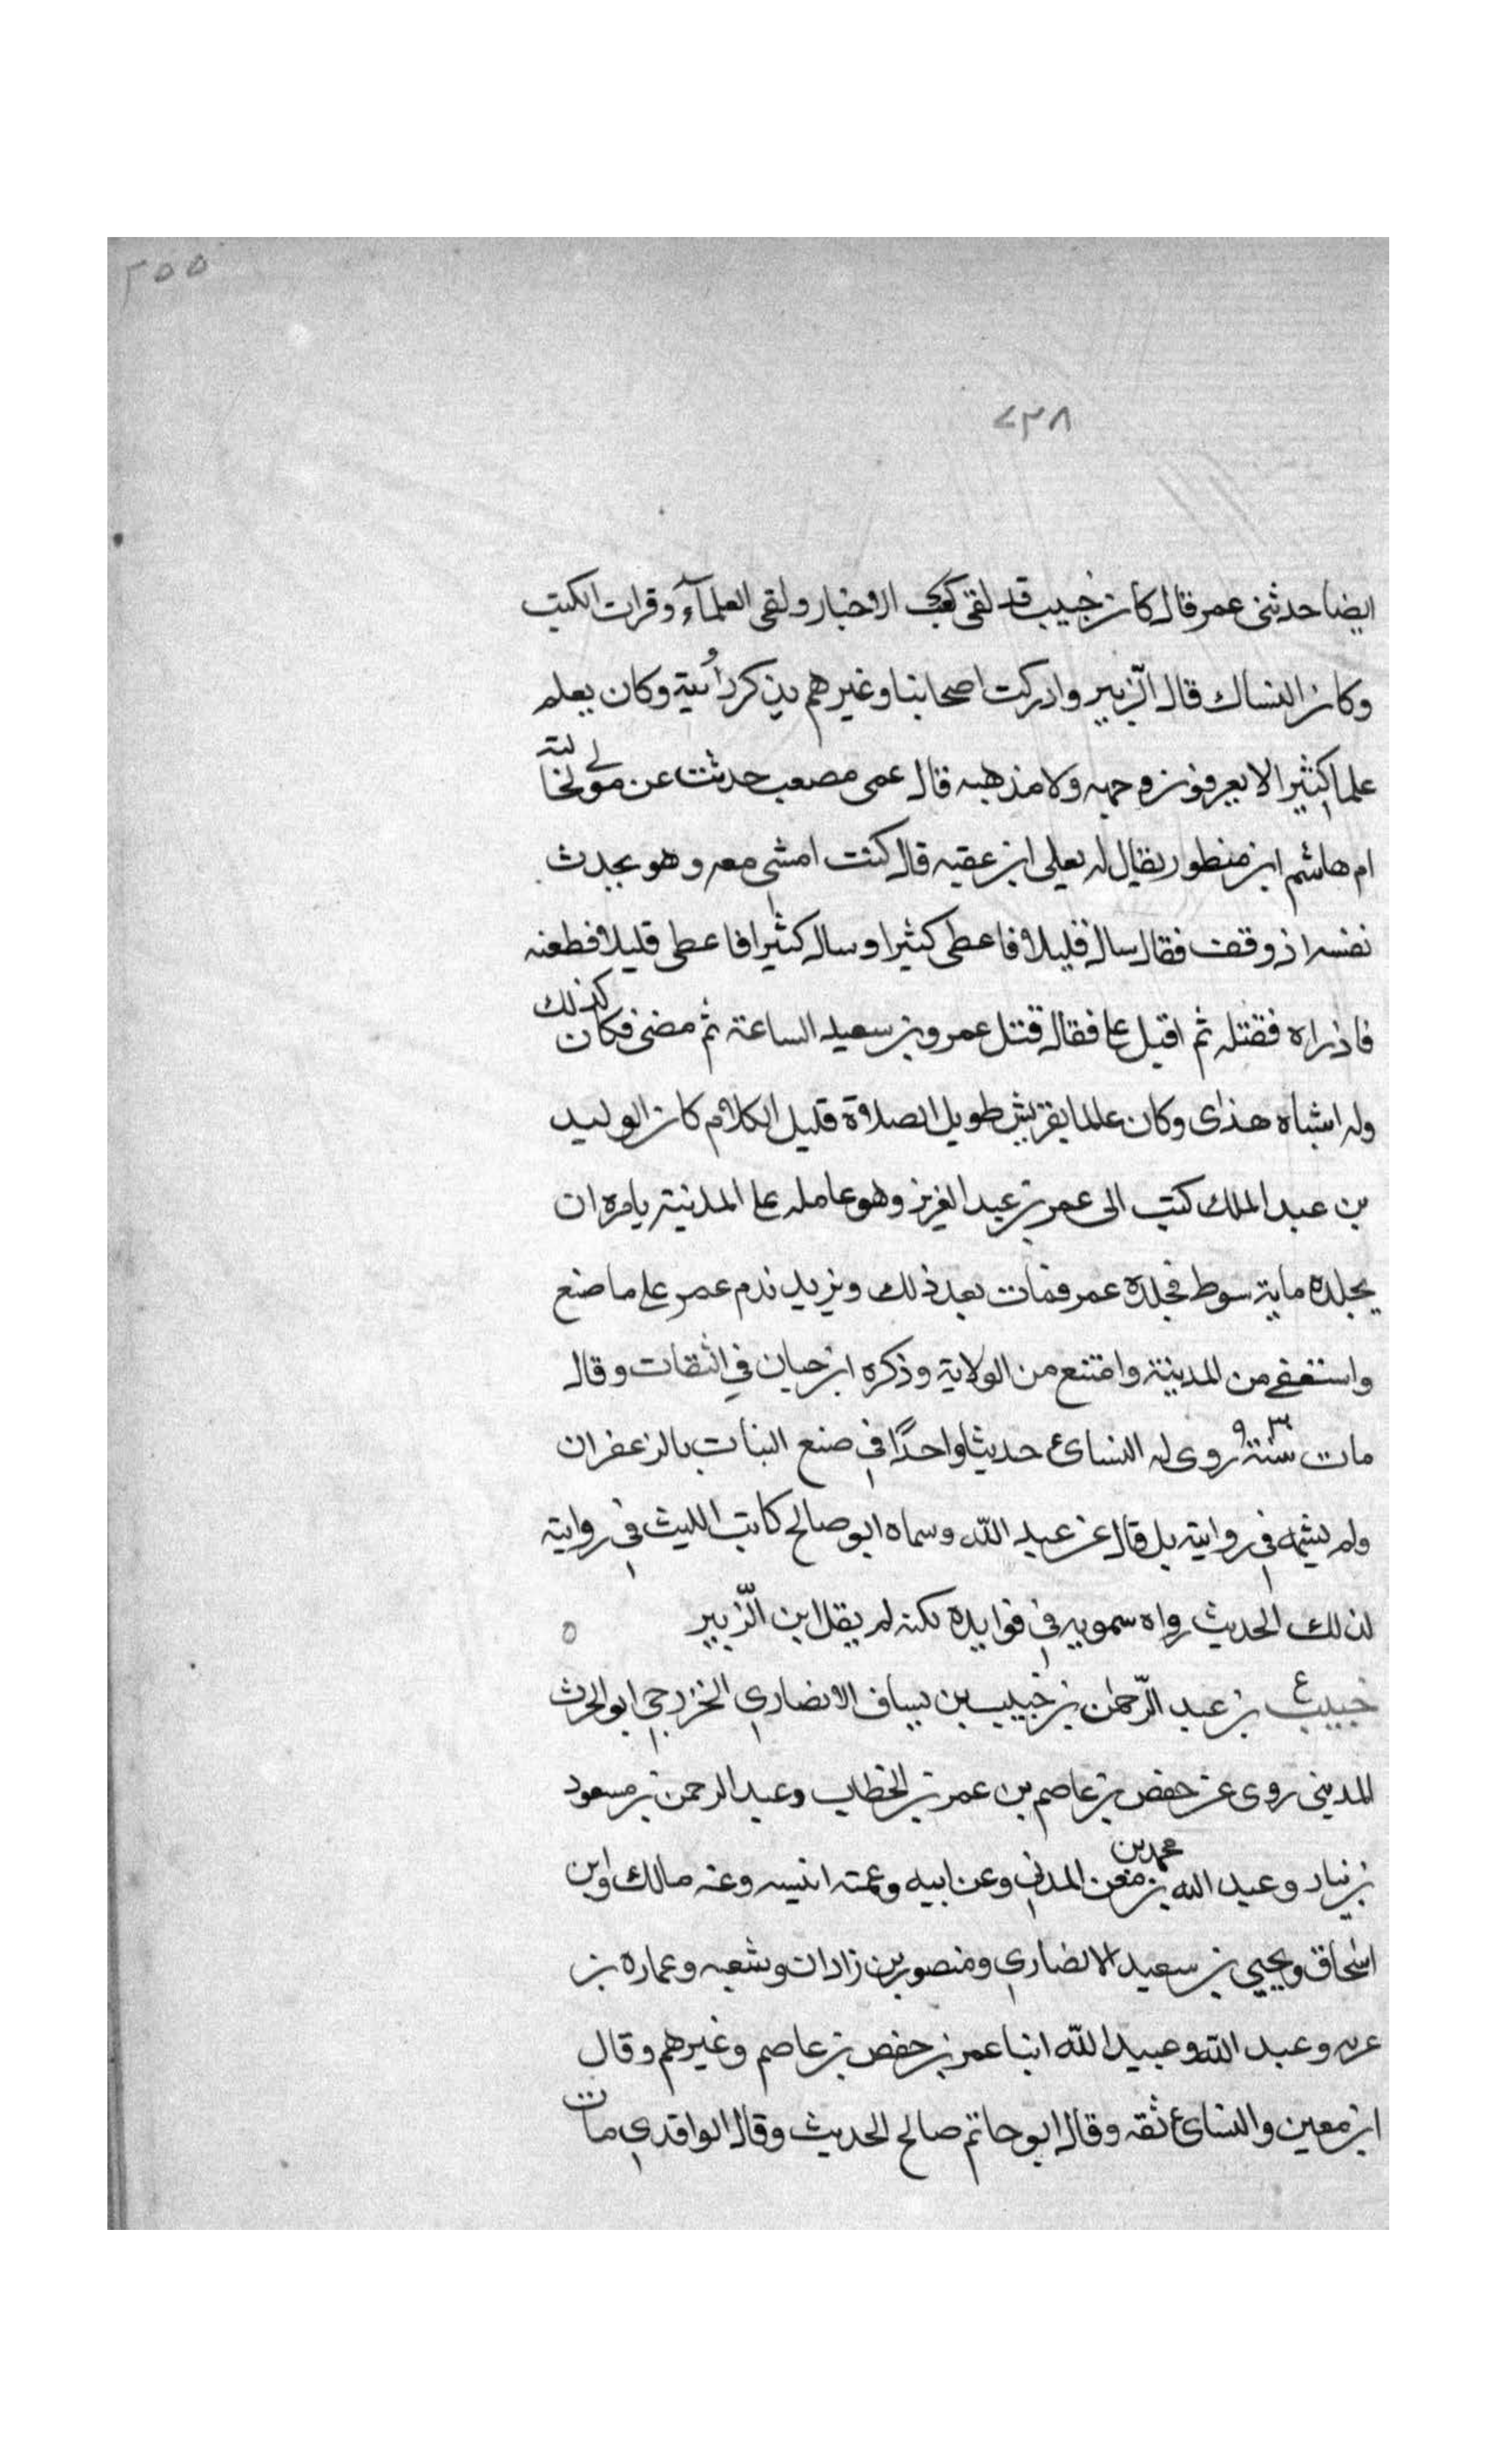 ٢٥٥
٧٣٨
ايضا حدثنى عمر قال كان خبيب قد لقى كعب الاحبار ولقى العلمآء وقرات الكتب
وكان النساك قال الزّبير وادركت اصحابنا وغيرهم يذكر وكان يعلم
علما كثيرا لا يعرفون وجهه ولا مذهبه قال عمى مصعب حدثت عن مولى لخالته
ام هاشم ابن منطور يقال له يعلى ابن عقبه قال كنت امشى معه وهو يحدث
نفسه اذ وقف فقال سال قليلا فاعطى كثيرا وسال كثيرا فاعطى قليلا فطعنه
فاذراه فقتله ثم اقبل على فقال قتل عمرو بن سعيد الساعة ثم مضى فكان كذلك
وله اشباه هذاى وكان عالما بقريش طويل الصلاة قليل الكلام كان الوليد
بن عبد الملك كتب الى عمر بن عبد العزيز وهو عامله على المدنية يامره ان
يجلده ماية سوط فجلده عمر فمات بعد ذلك ويزيد ندم عمر على ما صنع
واستعفى من المدينة وامتنع من الولاية وذكره ابن حبان في الثقات وقال
مات سنة ٩٣ روى له النسائ حديثا واحدًا في صنع البنات بالزعفران
ولم يسمه في روايته بل قال عن عبد الله وسماه ابو صالح كاتب الليث في روايته
لذلك الحديث رواه سمويه في فوايده لكنه لم يقل ابن الزّبير ٥
خبيب ع بن عبد الرّحمن بن خبيب بن يساف الانصاري الخزرجي ابو الحرث
المديني روى عن حفص بن عاصم بن عمر بن الخطاب وعبد الرحمن بن مسعود
بن نيار وعبد الله بن محمد بن معن المدني وعن ابيه وعمته انيسه وعنه مالك وابن
اسحاق ويحيي بن سعيد الانصاري ومنصور بن زادان وشعبه وعماره بن
عربه وعبد الله وعبيد الله ابنا عمر بن حفص بن عاصم وغيرهم وقال
ابن معين والنسائ ثقه وقال ابو حاتم صالح الحديث وقال الواقدي مات